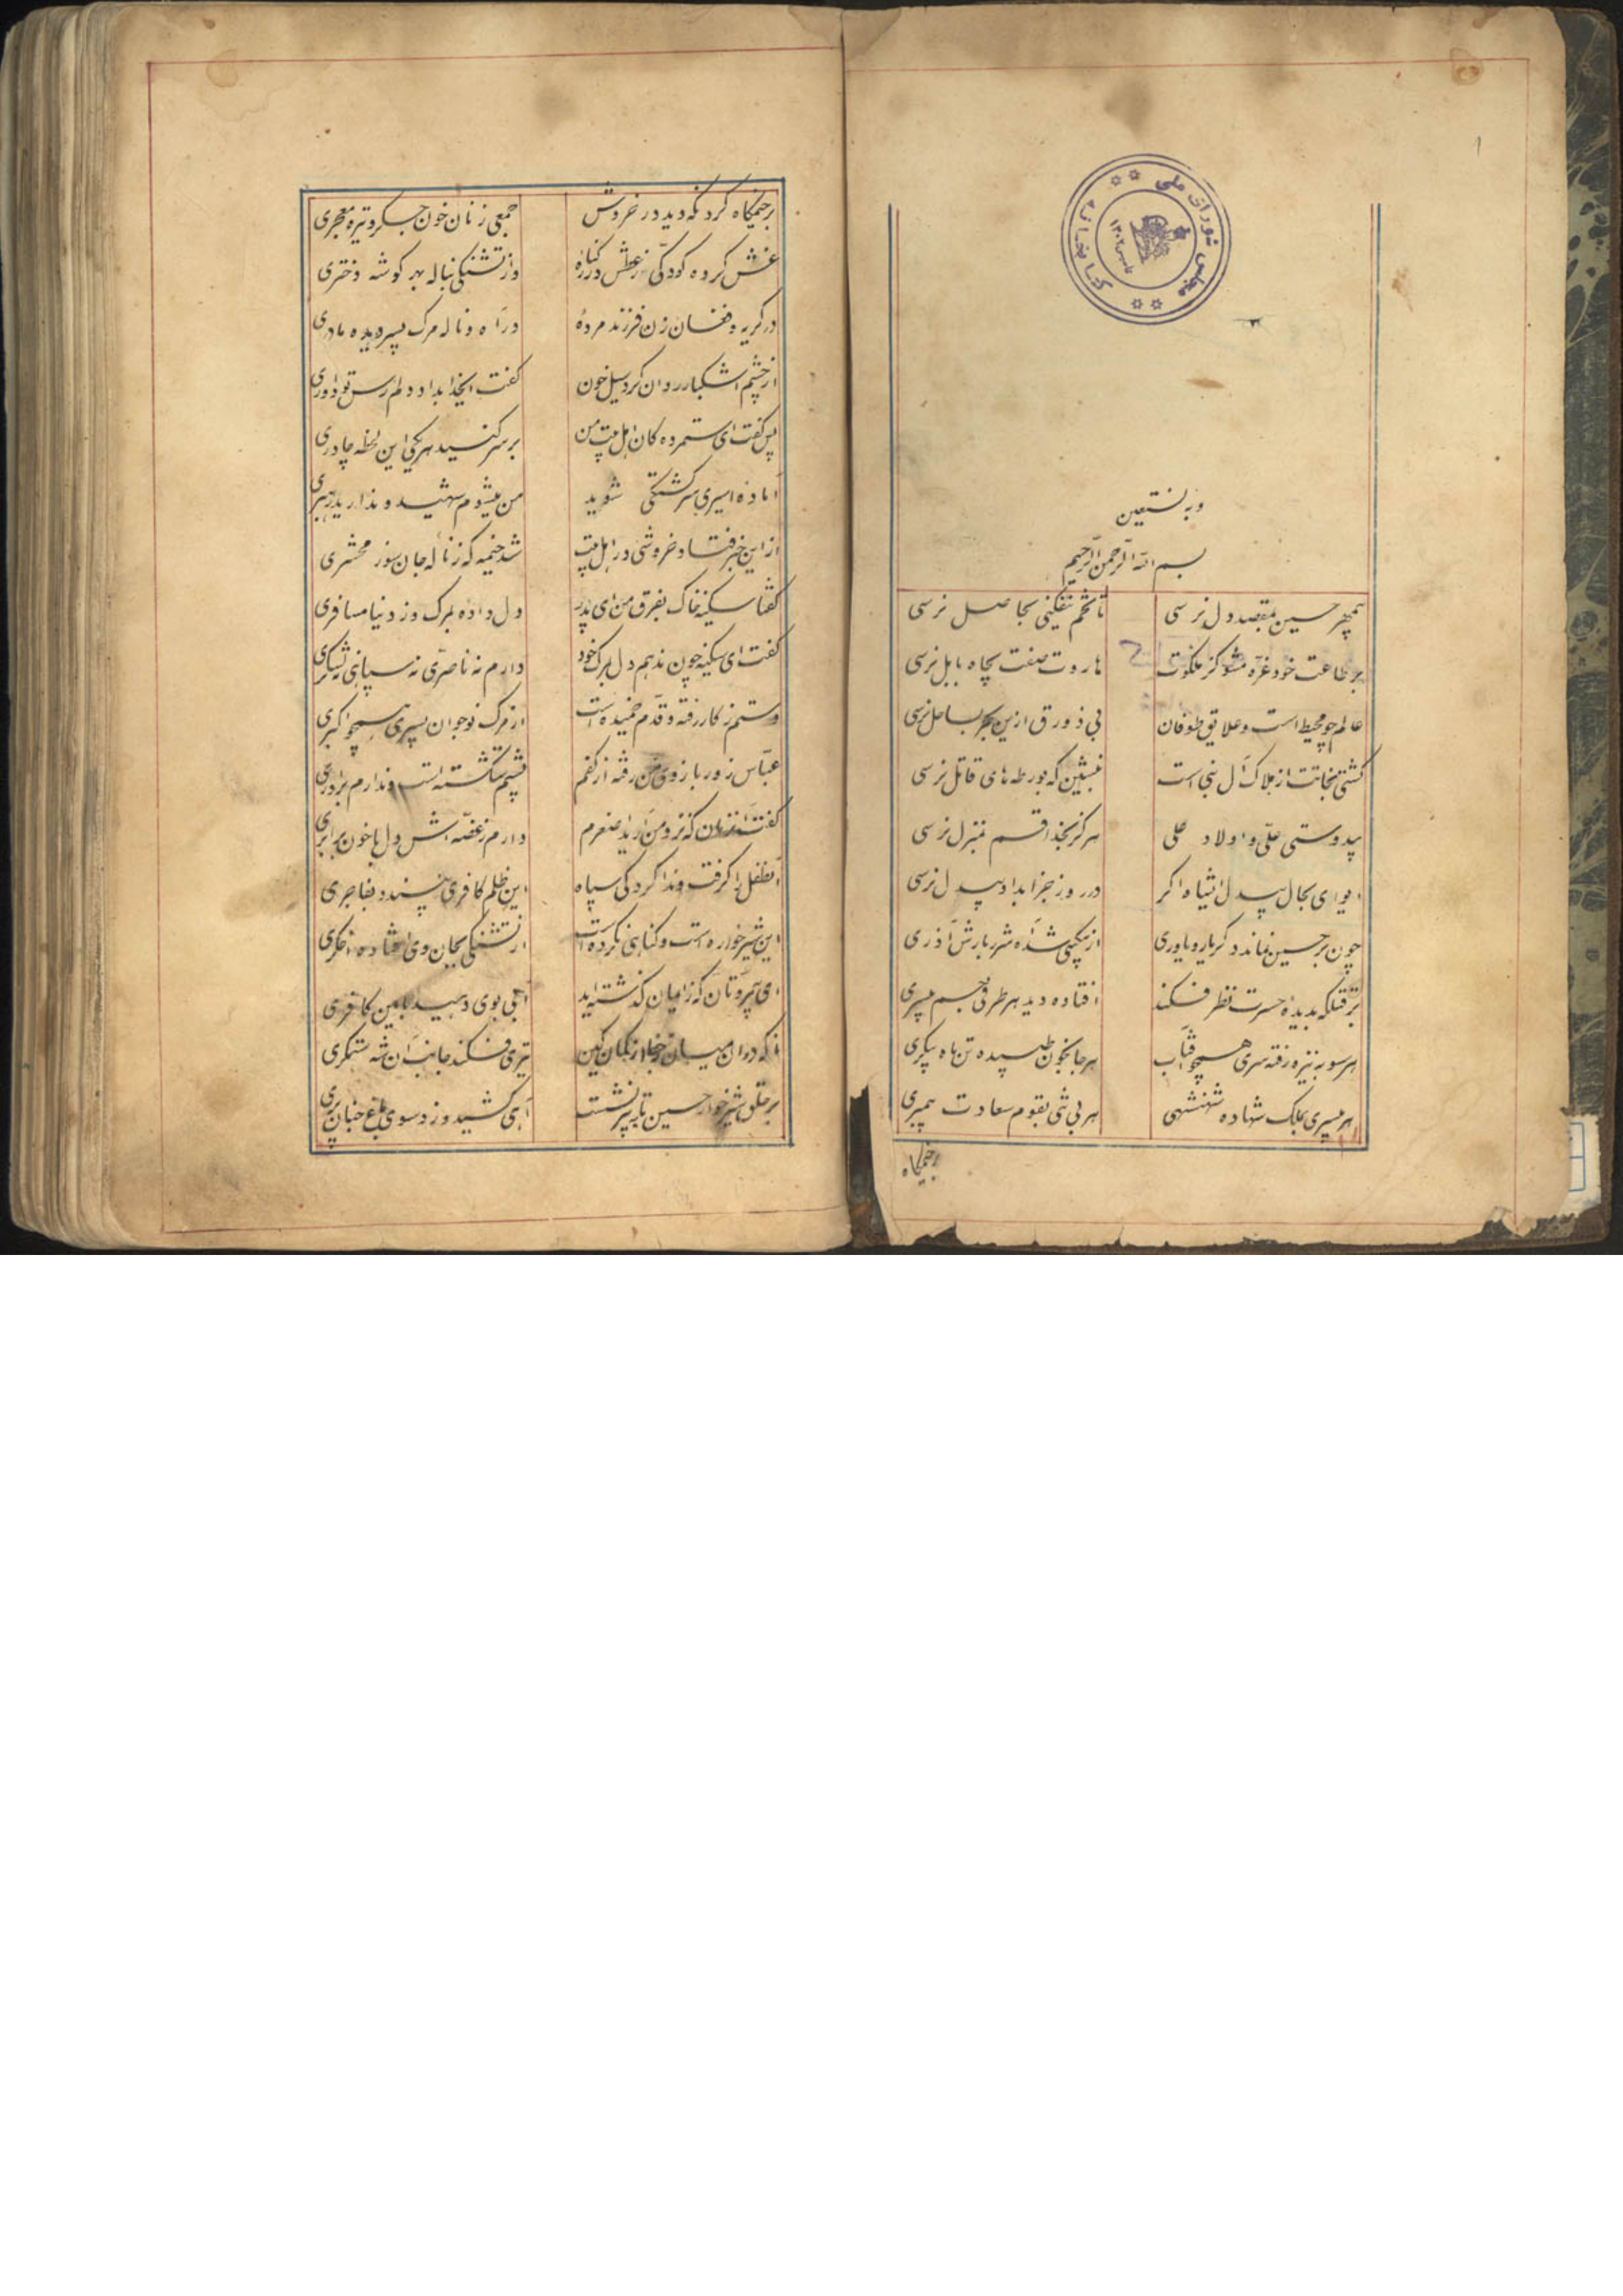 ۱
کتابخانه مجلس شورای ملی
وبه نستعین
بسم الله الرحمن الرحیم
بیمهر حسین بمقصد دل نرسی تا تخم نیفکنی بحاصل نرسی
بر طاعت خود غره مشو کز ملکوت هاروت صفت بچاه بابل نرسی
عالم چو محیط است و علایق طوفان بی زورق ازین بحر بساحل نرسی
کشتی نجاتت از هلاک آل نبی است بنشین که بورطه های قاتل نرسی
بیدوستی علی و اولاد علی هرگز بخدا قسم بمنزل نرسی
ایوای بحال بیدل اشیاه اگر در روز جزا بداد بیدل نرسی
چون بر حسین نماند دگر یار و یاوری از بیکسی شد آه شرر بارش آذری
بر قتلگه بدیده حسرت نظر فکند افتاده دید هر طرفی جسم بیسری
هر سو به نیزه رفته سری همچو آفتاب هر جا بخون طپیده تن ماه پیکری
هر بیسری بملک شهاده شهنشهی هر بی تنی بقوم سعادت پیمبری
بر خیمگاه
بر خیمگاه کرد نگه دید در خروش جمعی زنان خون جگر و تیره معجری
غش کرده کودکی ز عطش در کناره وز تشنگی بناله بهر گوشه دختری
در گریه و فغان زن فرزند مرده در آه و ناله مرگ پسر دیده مادری
از چشم اشکبار روان کرد سیل خون گفت ایخدا بداد دلم رس تو داوری
پس گفت ای ستمزده گان اهل بیت من بر سر کنید هر یکی این لحظه چادری
آماده اسیری سرگشتگی شوید من میشوم شهید و ندارید رهبری
از این خبر فتاد خروشی در اهل بیت شد خیمه گه ز ناله جان سوز محشری
گفتا سکینه خاک بفرق من ای پدر دل داده بمرگ و ز دنیا مسافری
گفت ای سکینه چون ندهم دل بمرگ خود دارم نه ناصری نه سپاهی نه لشکری
دستم ز کار رفته و قدم خمیده است از مرگ نوجوان پسری همچو اکبری
عباس زور بازوی من رفته از کفم پشتم شکسته است و ندارم برادری
گفت آنزمان که نزد من آرید اصغرم دارم ز غصه اش دل با خون برابری
آنطفل را گرفت و ندا کرد کی سپاه این ظلم کافری نپسندد بفاجری
این شیر خواره است و گناهی نکرده است از تشنگی بجان وی افتاده اخگری
ای بیمروتان که ز ایمان گذشته اید آبی بوی دهید باین کافری
ناگه در آن میان ز جفا از کمان کین تیری فکند جانب آن شه ستمگری
بر حلق شیر خوار حسین تا بپر نشست آهی کشید و زد سوی باغ جنان پری